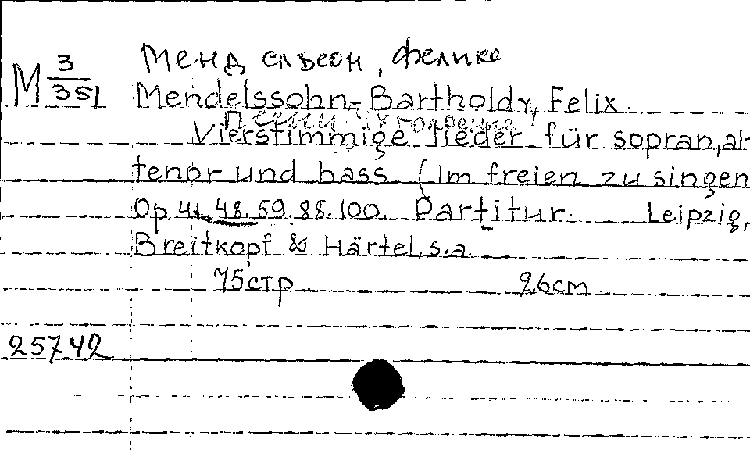 Менд ельсон, Феликс
M 3/351
Mendelssohn-Bartholdy, Felix.
Vierstimmige lieder für sopran, al-
tenor und bass (Im freien zu singen
Op. 41. 48. 59. 88. 100. Partitur. Leipzig,
Breitkopf & Härtel, s.a.
75стр 26cm
25742